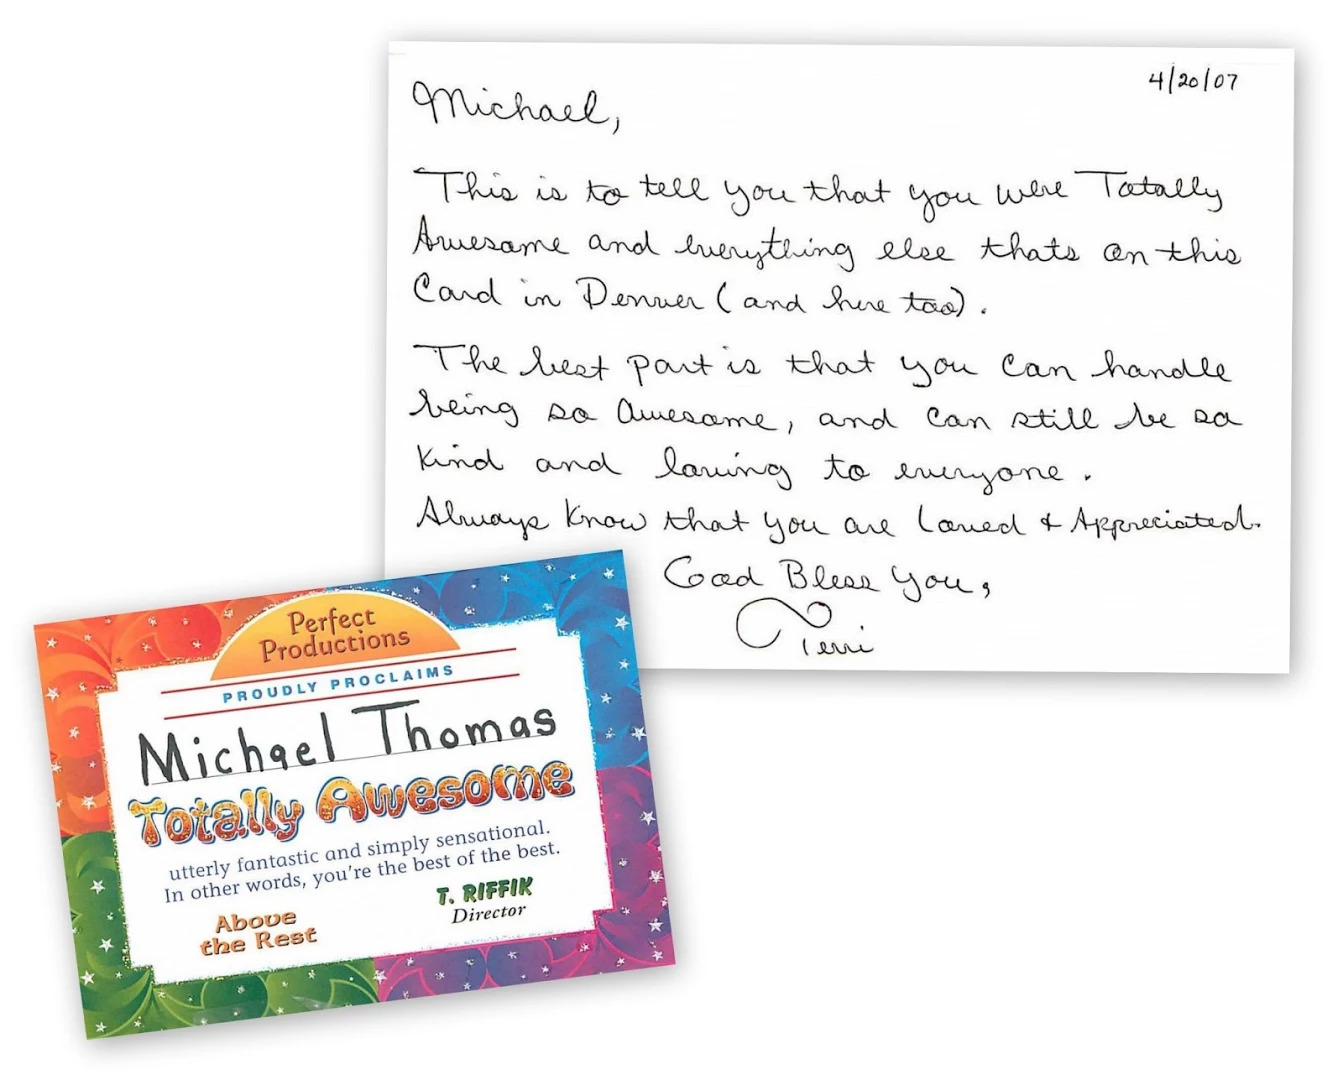 4/20/07
Michael,
This is to tell you that you were Totally
Awesome and everything else thats on this
Card in Denver (and here too).
The best part is that you can handle
being so awesome, and can still be so
kind and loving to everyone.
Always know that you are loved & Appreciated.
God Bless You,
Terri
Perfect
Productions
PROUDLY PROCLAIMS
Michael Thomas
Totally Awesome
utterly fantastic and simply sensational.
In other words, you're the best of the best.
Above
the Rest
T. RIFFIK
Director